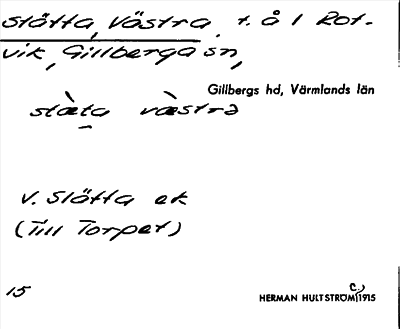 Slötta, Västra, t. å l Rot-
vik, Gillberga sn,
Gillbergs hd, Värmlands län
slæ̀ta væ̀stra
V. Slötta ek
(Till Torpet)
15
HERMAN HULTSTRÖM(C.) 1915